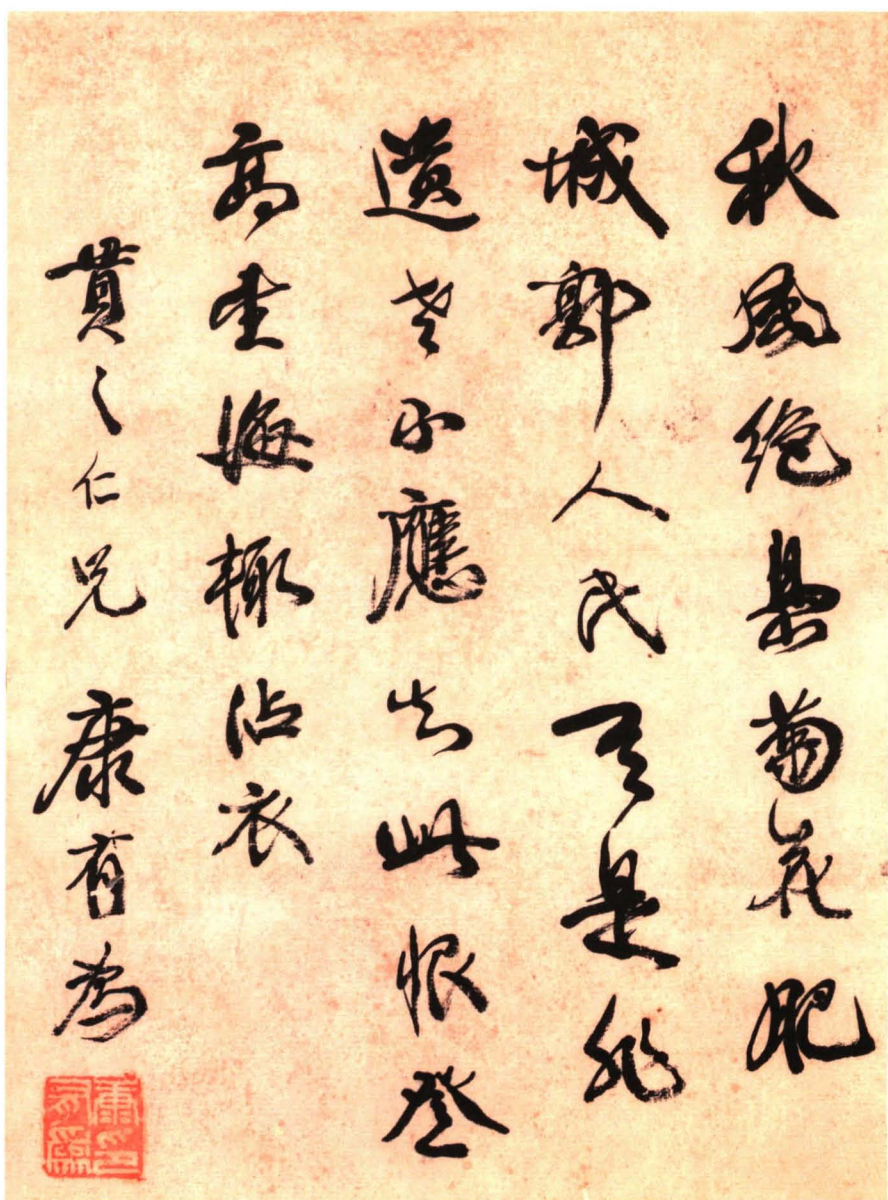 秋風絕菊花肥
城郭人民是非
遺老不應知此恨登
高海輒沾衣
貫之仁兄 康有為
康有為印